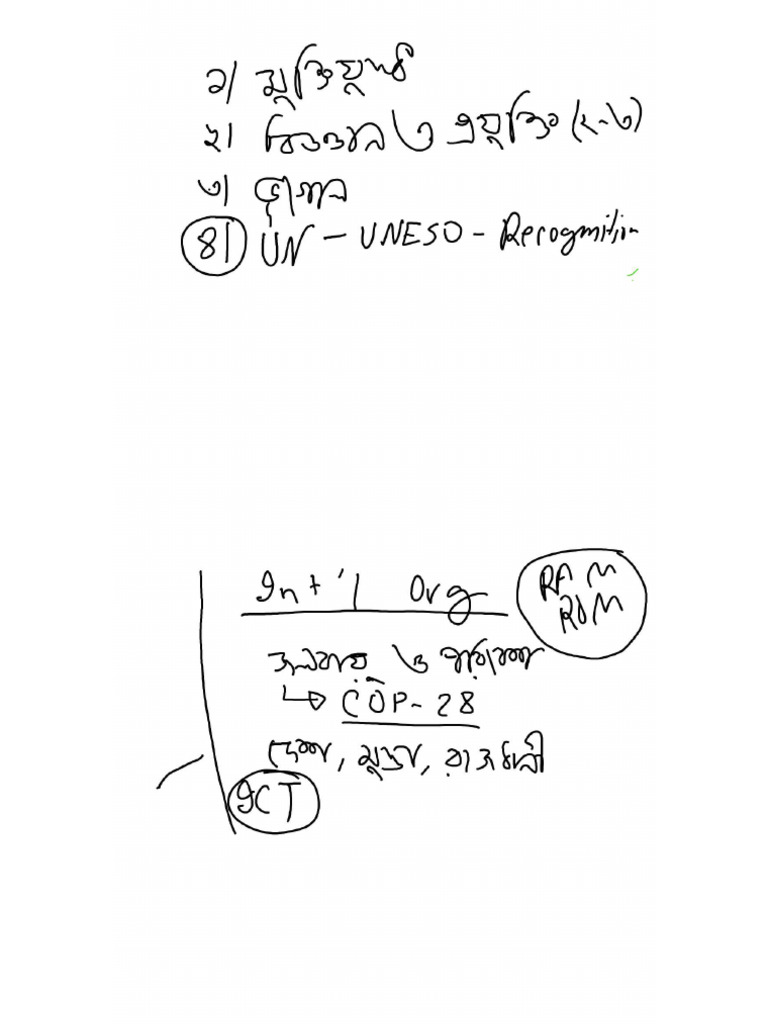 ১। মুক্তিযুদ্ধ
২। বিজ্ঞান ও প্রযুক্তি (২-৩)
৩। ভূগোল
৪। UN - UNESO - Recognition
Int'l Org
RAM
ROM
জলবায়ু ও পরিবেশ
COP-28
দেশ, মুদ্রা, রাজধানী
ICT